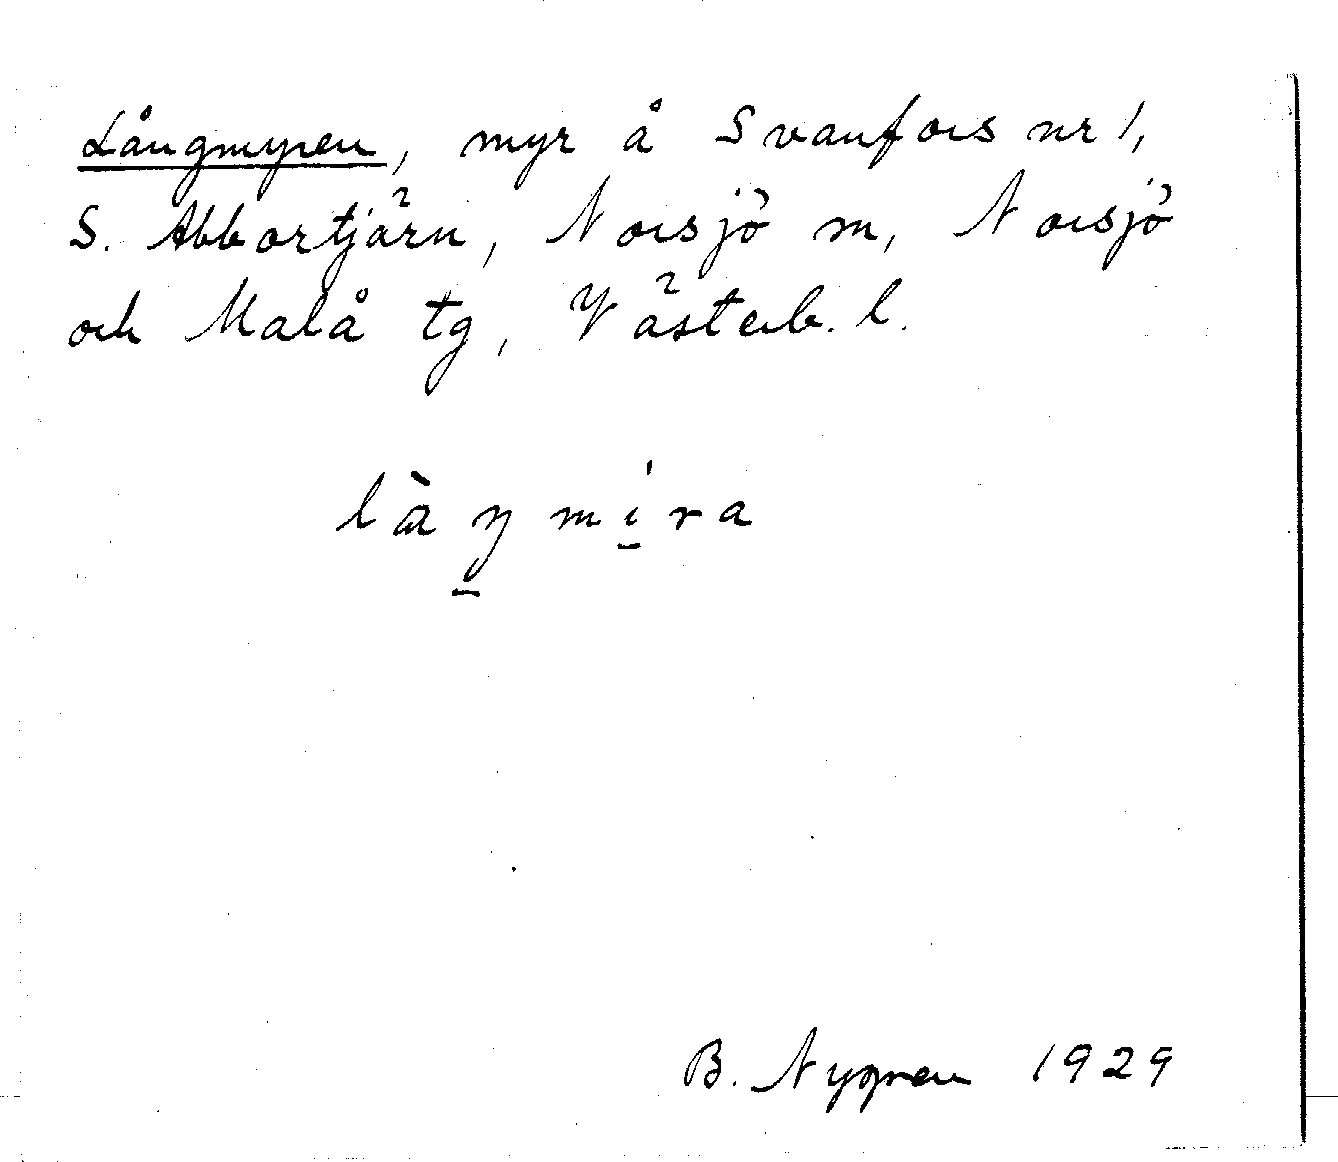 Långmyren, myr å Svanfors nr 1,
S. Abbortjärn, Norsjö sn, Norsjö
och Malå tg, Västerb. l.
là̱ŋmi̱ra
B. Nygren 1929